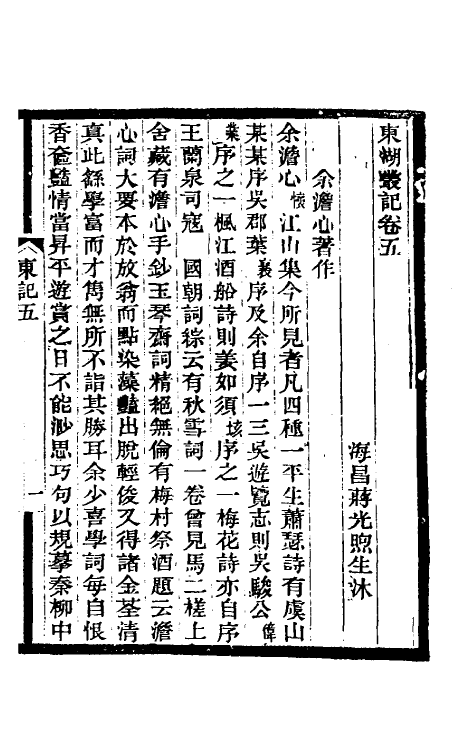 東湖叢記卷五
海昌蔣光煦生沐
余澹心著作
余澹心懷江山集今所見者凡四種一平生蕭瑟詩有虞山
某某序吳郡葉襄序及余自序一三吳遊覽志則吳駿公偉
業序之一楓江酒船詩則姜如須垓序之一梅花詩亦自序
王蘭泉司寇　國朝詞綜云有秋雪詞一卷曾見馬二槎上
舍藏有澹心手鈔玉琴齋詞精絕無倫有梅村祭酒題云澹
心詞大要本於放翁而點染藻豔出脫輕俊又得諸金荃清
真此繇學富而才雋無所不詣其勝耳余少喜學詞每自恨
香奩豔情當昇平遊賞之日不能渺思巧句以規摹秦柳中
東記五
一